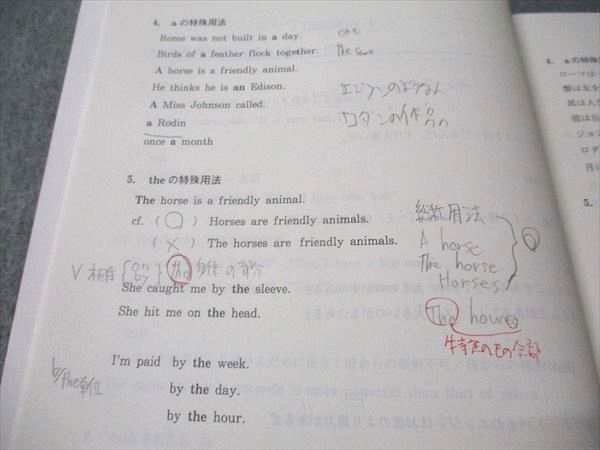 4. aの特殊用法
Rome was not built in a day. one
Birds of a feather flock together. the same
A horse is a friendly animal.
He thinks he is an Edison. エジソンのような人
A Miss Johnson called.
a Rodin ロダンの作品
once a month
5. theの特殊用法
The horse is a friendly animal.
cf. ( ○ ) Horses are friendly animals.
( × ) The horses are friendly animals.
総称用法
A horse
The horse
Horses
V 相手 { on by } the 身体の部分
She caught me by the sleeve.
She hit me on the head.
特定のもの全部
I'm paid by the week.
by the day.
by the hour.
by the 単位
4. aの特殊
ローマは
馬は人
彼は自
ジョン
ロダ
月に
5.